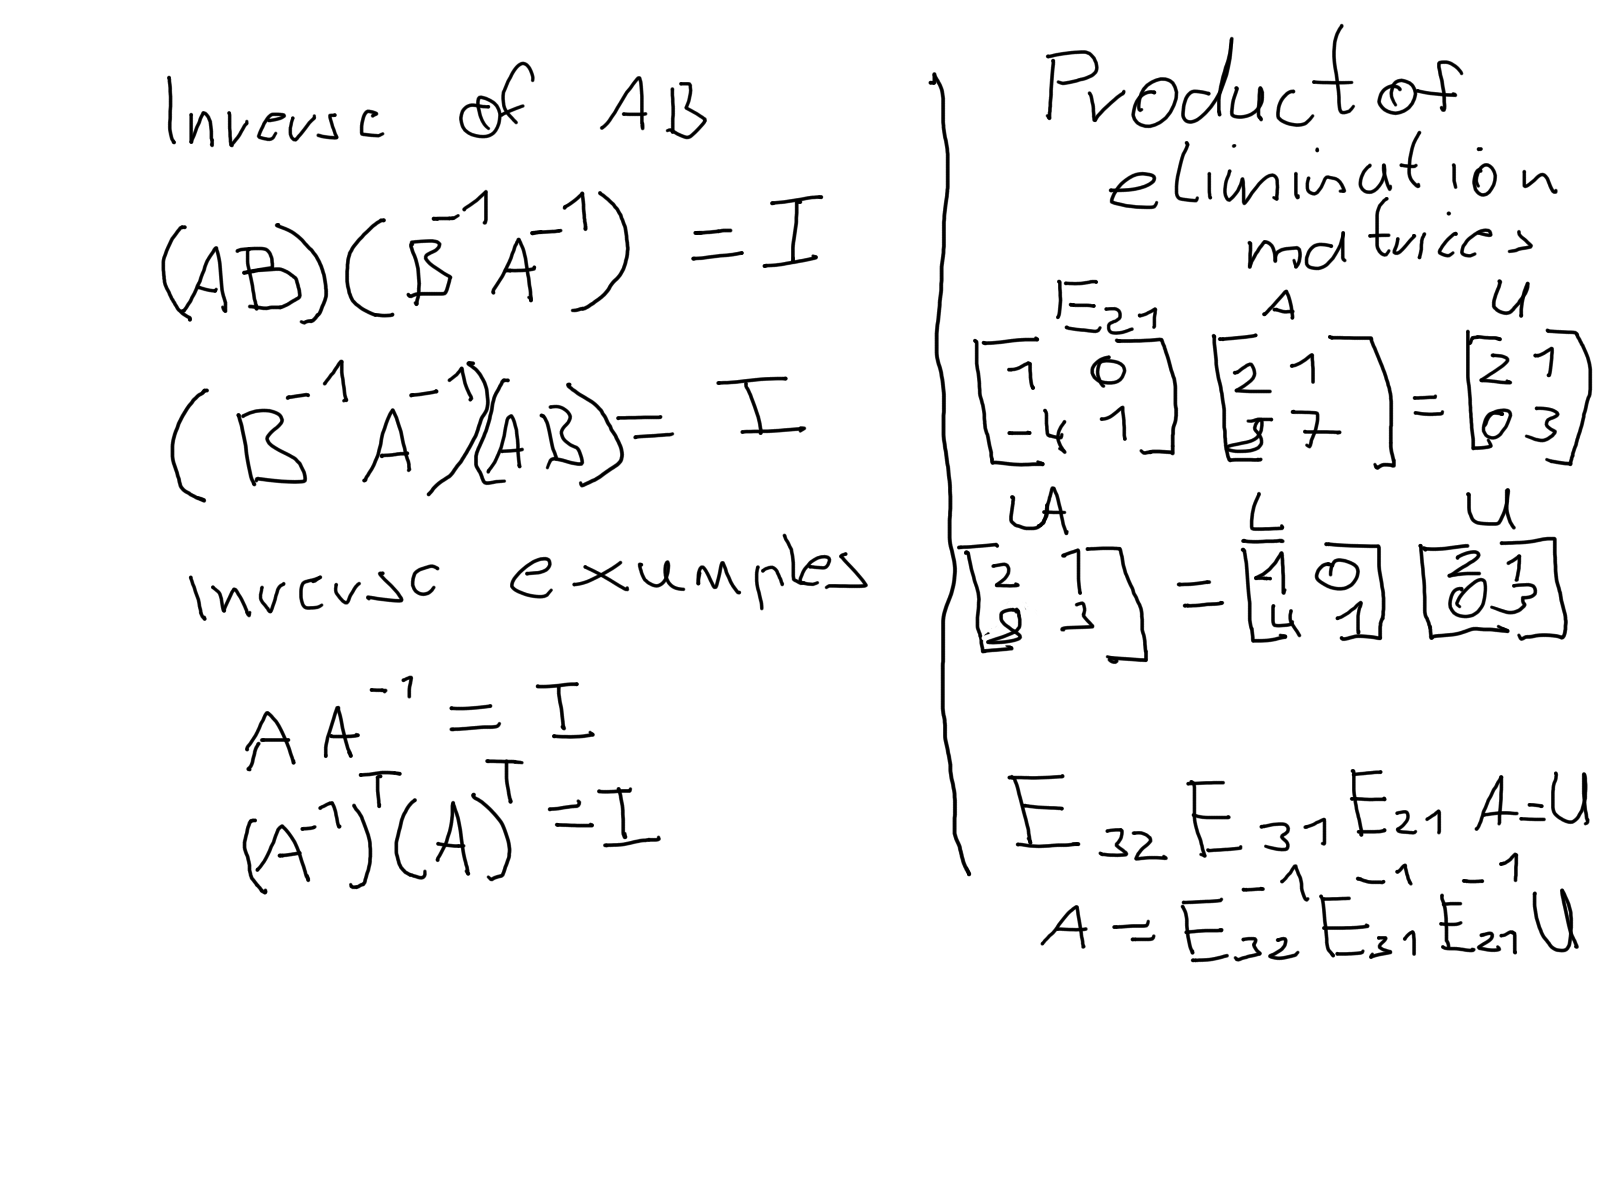 Inverse of AB
(AB)(B⁻¹A⁻¹) = I
(B⁻¹A⁻¹)(AB) = I
Inverse examples
A A⁻¹ = I
(A⁻¹)ᵀ(A)ᵀ = I
Product of
elimination
matrices
E₂₁ A U
[1 0 [2 1 = [2 1
-4 1] 8 7] 0 3]
A L U
[2 1 = [1 0 [2 1
8 3] 4 1] 0 3]
E₃₂ E₃₁ E₂₁ A = U
A = E₃₂⁻¹ E₃₁⁻¹ E₂₁⁻¹ U